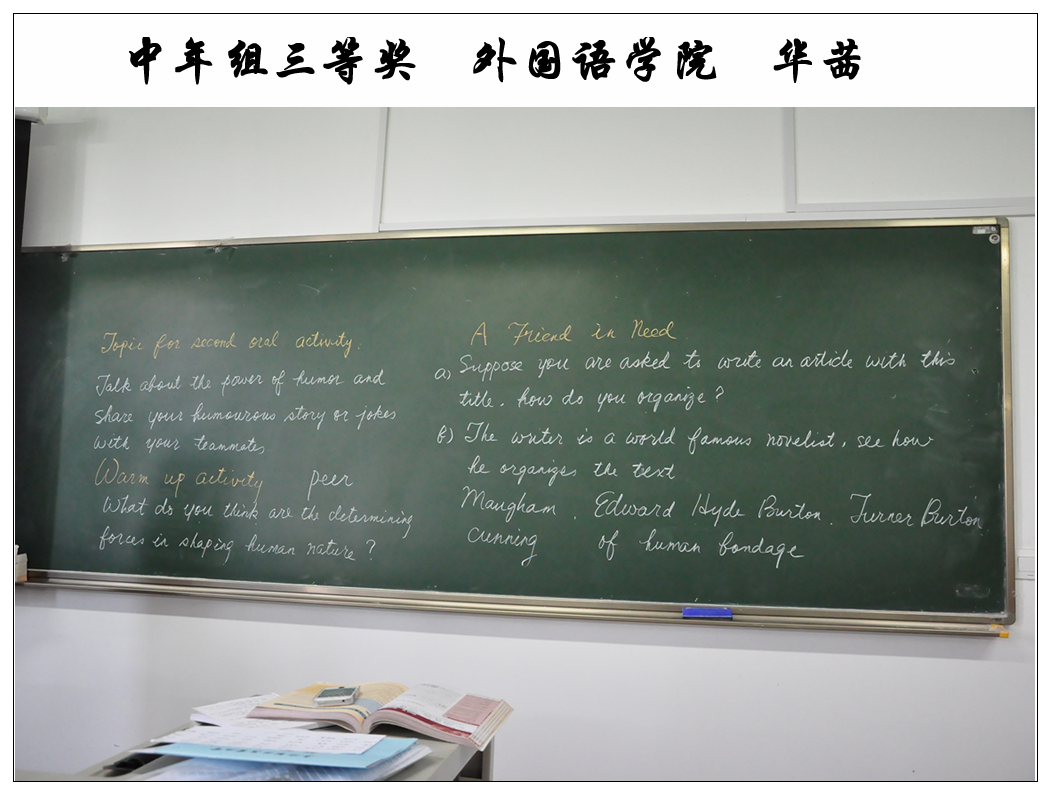 中年组三等奖 外国语学院 华茜
Topic for second oral activity:
Talk about the power of humor and
share your humourous story or jokes
with your teammates
Warm up activity peer
What do you think are the determining
forces in shaping human nature?
A Friend in Need
a) Suppose you are asked to write an article with this
title. how do you organize?
b) The writer is a world famous novelist, see how
he organizes the text
Maugham. Edward Hyde Burton. Turner Burton
cunning of human bondage